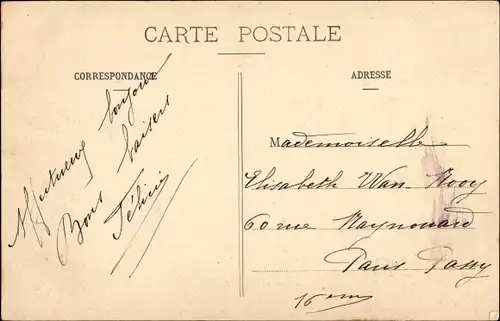 CARTE POSTALE
CORRESPONDANCE
Affectueux bonjour
Bons baisers
Félicie
ADRESSE
Mademoiselle
Elisabeth Wan-Rooy
60 rue Raynouard
Paris Passy
16ème